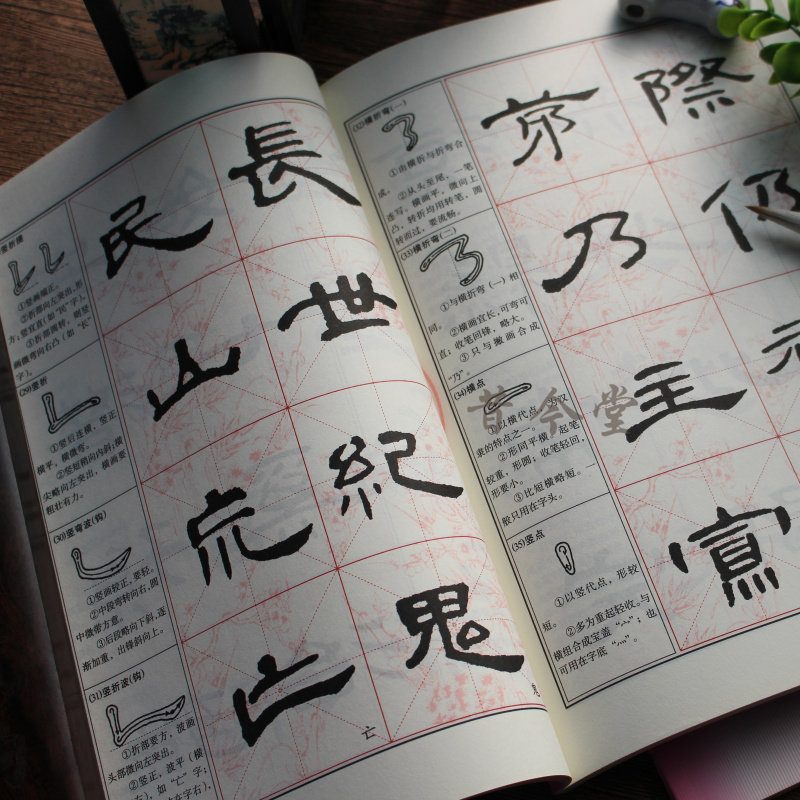 ①竖画横正。
②折部向左突出,形
方;竖宜直(如“民”字)。
③折部圆转,则竖
画微弯向右凸(如“长”
字)。
(29)竖折
①竖后连横,竖正
横平,横微弯。
②竖短稍向内斜;横
尖略向左突出,横画要
粗壮有力。
(30)竖弯波(钩)
①竖画较正,要轻。
②中段弯转向右,圆
中微带方意。
③后段略向下斜,逐
渐加重,出锋斜向上。
(31)竖折波(钩)
①折部要方,波画
头部微向左突出。
②竖正,波平(横
),如“亡”字;
民
長
山
世
紀
亡
鬼
亡
鬼
(32)横折弯(一)
①由横折与折弯合
成。
②从头至尾,一笔
连写。横画平,微向上
凸,转折均用转笔,圆
转而过,要流畅。
(33)横折弯(二)
①与横折弯(一)相
同。
②横画宜长,可弯可
直;收笔回锋,略大。
③只与撇画合成
“乃”。
(34)横点
①以横代点,为汉
隶的特点之一。
②形同平横,起笔
较重,形圆;收笔轻回,
形要小。
③比短横略短。一
般只用在字头。
(35)竖点
①以竖代点,形较
短。
②多为重起轻收。与
横组合成宝盖“宀”;也
可用在字底“灬”。
際
乃
仍
主
元
寫
昔今堂